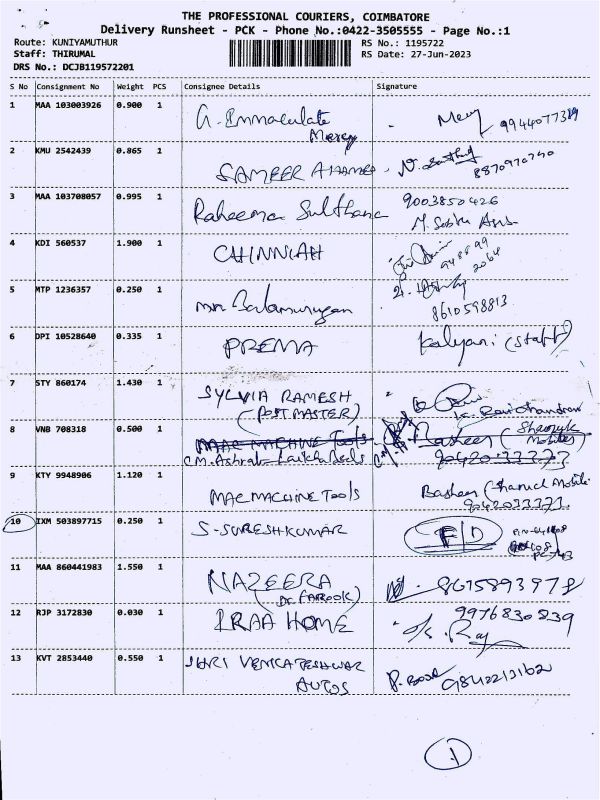 THE PROFESSIONAL COURIERS, COIMBATORE
Delivery Runsheet - PCK - Phone No.:0422-3505555 - Page No.:1
Route: KUNIYAMUTHUR RS No.: 1195722
Staff: THIRUMAL RS Date: 27-Jun-2023
DRS No.: DCJB119572201
S No Consignment No Weight PCS Consignee Details Signature
1 MAA 103003926 0.900 1 G. Immaculate Mercy
2 KMU 2542439 0.865 1 SAMEER AHAMED 8870970740
3 MAA 103708057 0.995 1 Raheema Sulthana 9003850426
4 KDI 560537 1.900 1 CHINNIAH
5 MTP 1236357 0.250 1 Balamurugan 8610598813
6 DPI 10528640 0.335 1 PREMA Kalyani (staff)
7 STY 860174 1.430 1 SYLVIA RAMESH (POST MASTER) K. Ravichandran
8 VNB 708318 0.500 1 MAC MACHINE Tools C.M. Ashraf 9042033777
9 KTY 9948906 1.120 1 MAC MACHINE Tools Basheer 9042033777
10 IXM 503897715 0.250 1 S-SURESHKUMAR F/D
11 MAA 860441983 1.550 1 NAZEERA (DC FAROOK) 8615893978
12 RJP 3172830 0.030 1 IRAA HOME 9976830839
13 KVT 2853440 0.550 1 SHRI VENKATESHWAR AUTOS 9842213162
1